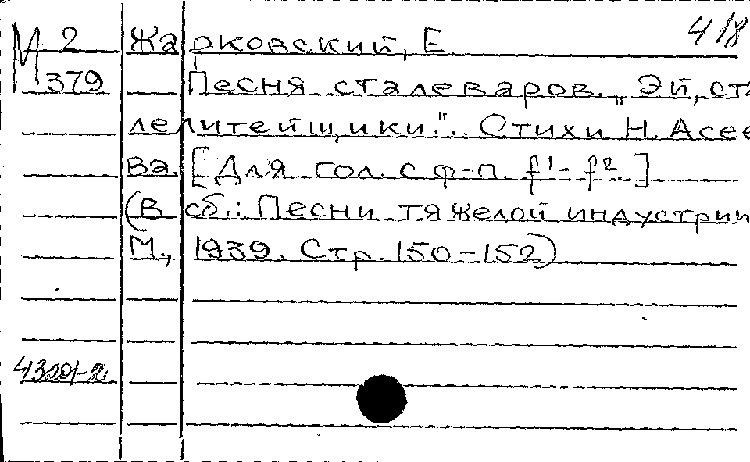 М 2 Жарковский, Е. 4/8
379 Песня сталеваров. „Эй, ста
лелитейщики!". Стихи Н. Асее
ва. [Для гол. с ф-п. f¹-f²]
(В сб.: Песни тяжелой индустрии
М., 1939. Стр. 150-152)